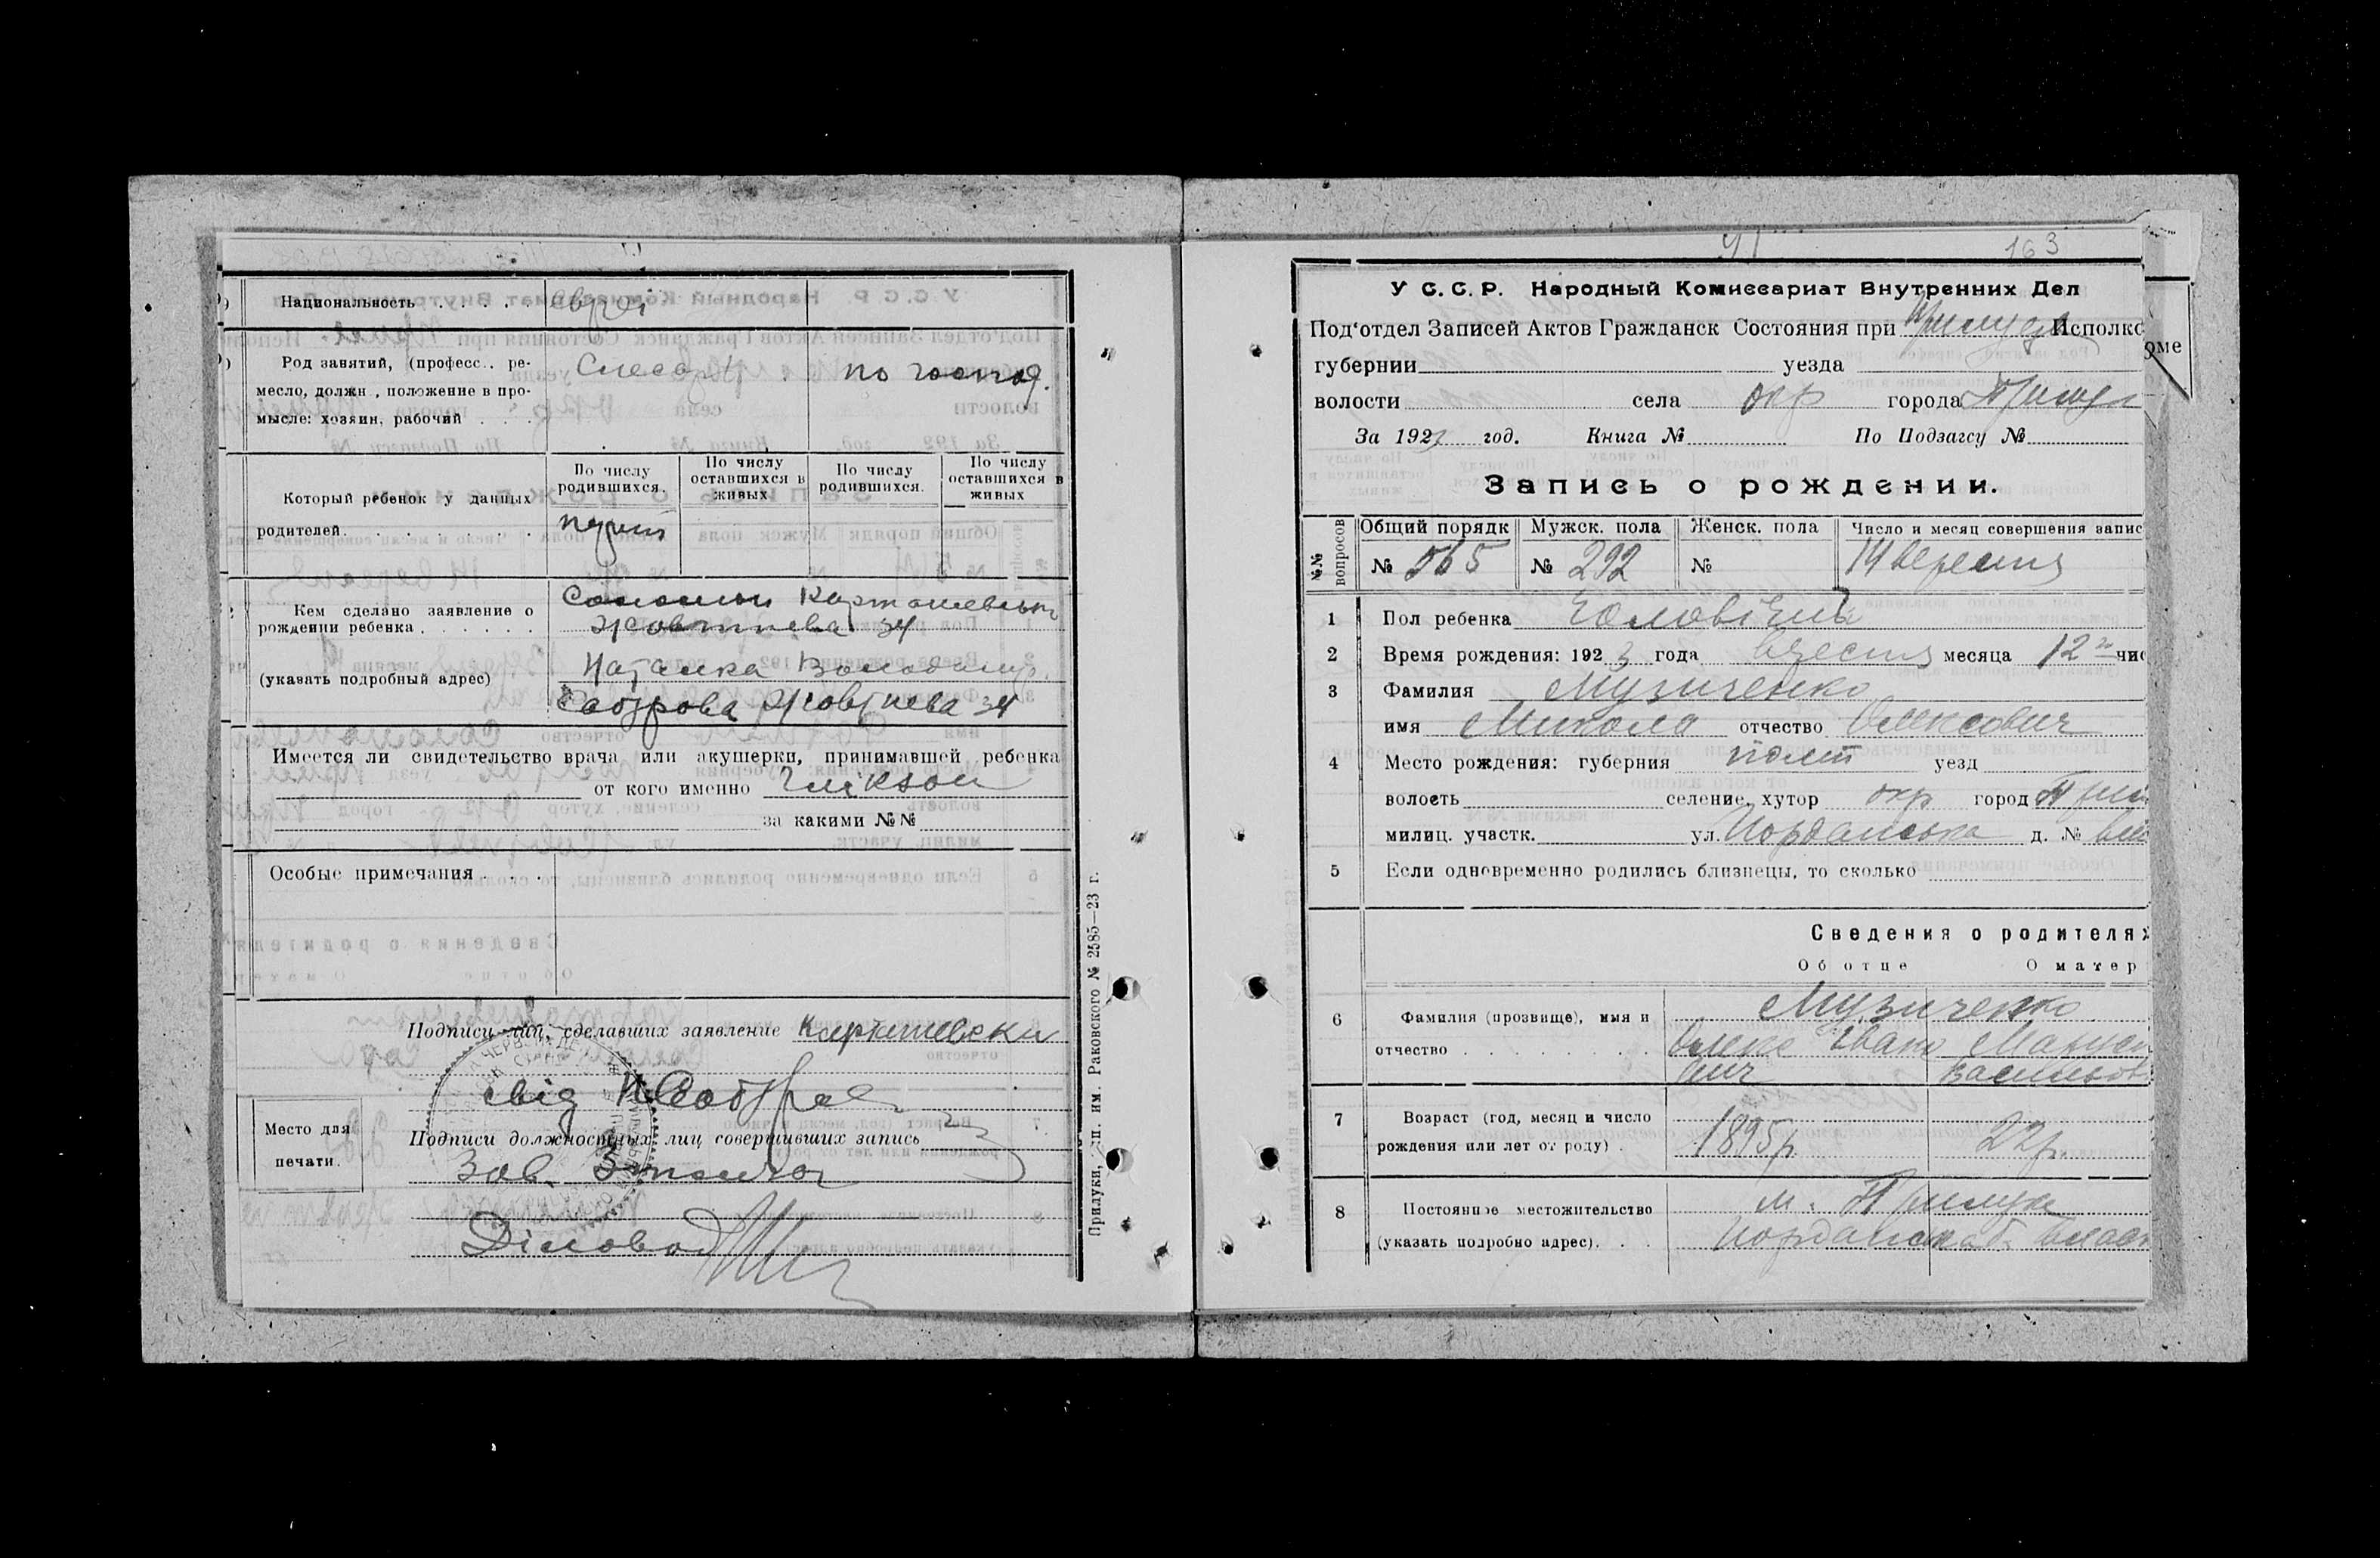 Национальность . . . . . євреї
Род занятий, (професс.. ре-
месло, должн , положение в про-
мысле: хозяин, рабочий . . .
Слесарь
по господ.
Который ребенок у данных
родителей . . . . . . . .
По числу родившихся.
По числу оставшихся в живых
По числу родившихся.
По числу оставшихся в живых
перший
Кем сделано заявление о
рождении ребенка . . . . . .
(указать подробный адрес)
Соломон
Жовтнева 34
Наталка Володимир.
Жовтнева 34
Имеется ли свидетельство врача или акушерки, принимавшей ребенка
от кого именно
за какими №№
Особые примечания . . .
Подписи лиц, сделавших заявление
свід
Место для
печати.
Подписи должностных лиц совершивших запись
Зав.
Діловод
Прилуки, тип. им. Раковского № 2585—23 г.
41
163
У С. С. Р. Народный Комиссариат Внутренних Дел
Под'отдел Записей Актов Гражданск Состояния при Исполко
оме
губернии уезда
волости села окр города Прилук
За 1923 год. Книга № По Подзагсу №
Запись о рождении.
№№ вопросов
Общий порядк
Мужск. пола
Женск. пола
Число и месяц совершения запис
№ 565
№ 292
№
14 вересня
1 Пол ребенка чоловічий
2 Время рождения: 1923 года вересня месяца 12 чис
3 Фамилия Музиченко
имя Микола отчество Олексович
4 Место рождения: губерния полт уезд
волость селение, хутор окр город Прил
милиц. участк. ул. Йорданська д. № вла
5 Если одновременно родились близнецы, то сколько
Сведения о родителях
Об отце О матер
6 Фамилия (прозвище), имя и
отчество . . . . . . . .
Музиченко
Олекс Івано
вич
Василов
7 Возраст (год, месяц и число
рождения или лет от роду) .
1895р.
22р.
8 Постоянное местожительство
(указать подробно адрес). . .
м. Прилуки
Йорданська б. власн